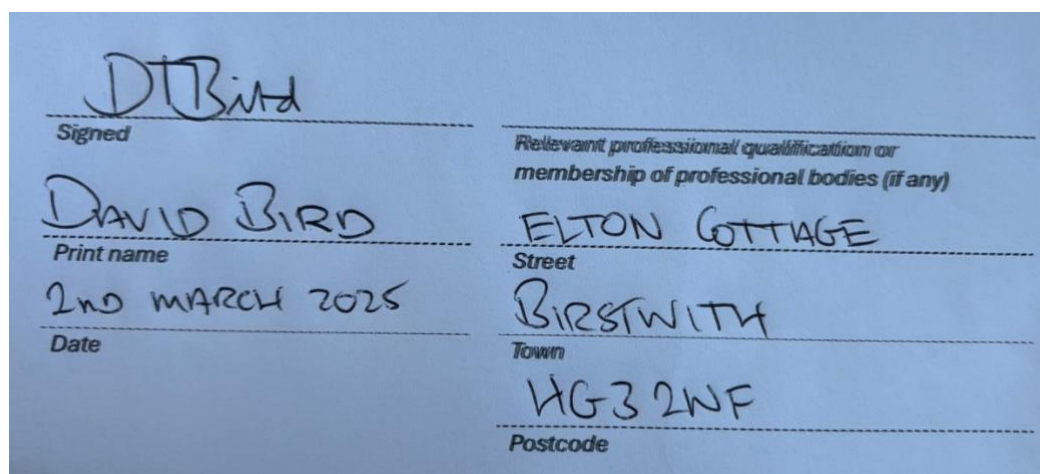 DTBird
Signed
DAVID BIRD
Print name
2ND MARCH 2025
Date
Relevant professional qualification or
membership of professional bodies (if any)
ELTON COTTAGE
Street
BIRSTWITH
Town
HG3 2WF
Postcode